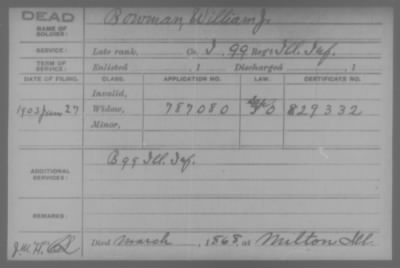 DEAD
NAME OF SOLDIER: Bowman, William J.
SERVICE: Late rank, Co. I, 99 Reg't Ill. Inf.
TERM OF SERVICE: Enlisted , 1 Discharged , 1
DATE OF FILING. CLASS. APPLICATION NO. LAW. CERTIFICATE NO.
Invalid,
1903 June 27 Widow, 787080 829332
Minor,
ADDITIONAL SERVICES: B 99 Ill. Inf.
REMARKS:
Died March , 1868, at Milton Ill.